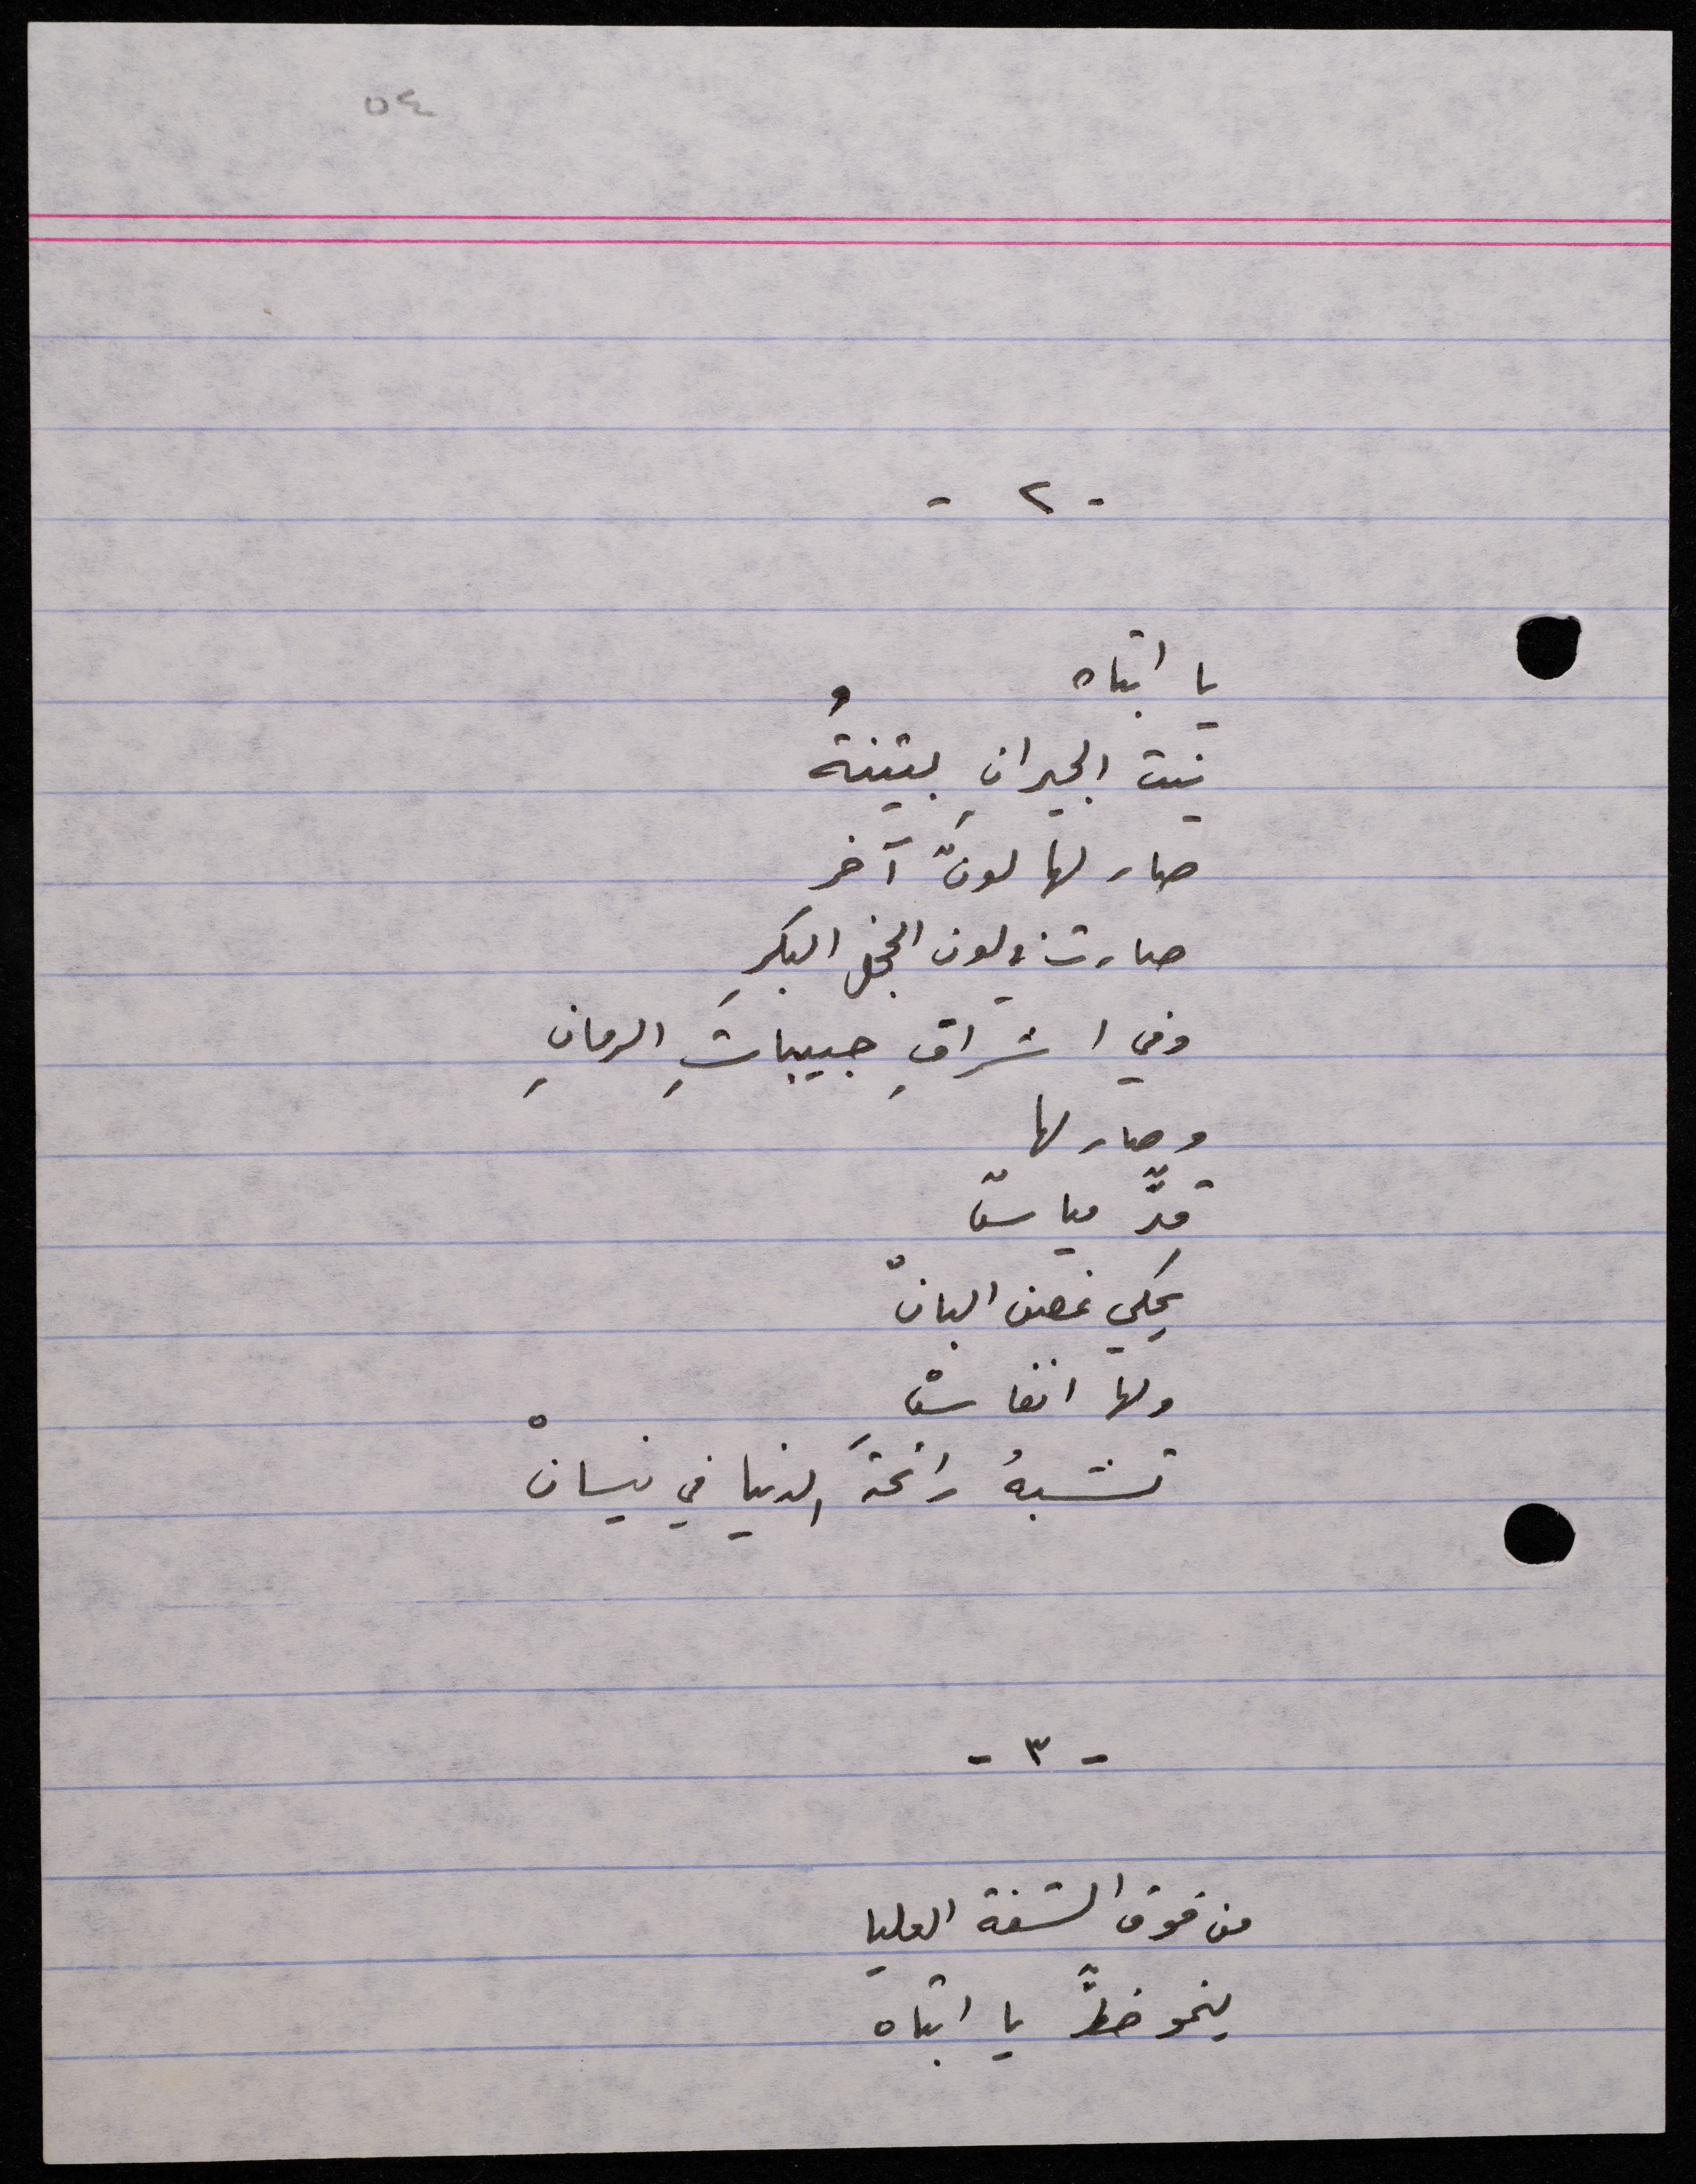 ٥٤
- ٢ -
يا ابتاه
بنت الجيرانِ بثينةُ
صار لها لونٌ آخر
صارت في لون الخجل البكرِ
وفي اشراقِ حبيباتِ الرمانِ
وصار لها
قدٌّ مياسٌ
يحكي غصن البانْ
ولها انفاسٌ
تشبهُ رائحةَ الدنيا في نيسانْ
- ٣ -
من فوق الشفة العليا
ينمو خطٌّ يا ابتاه